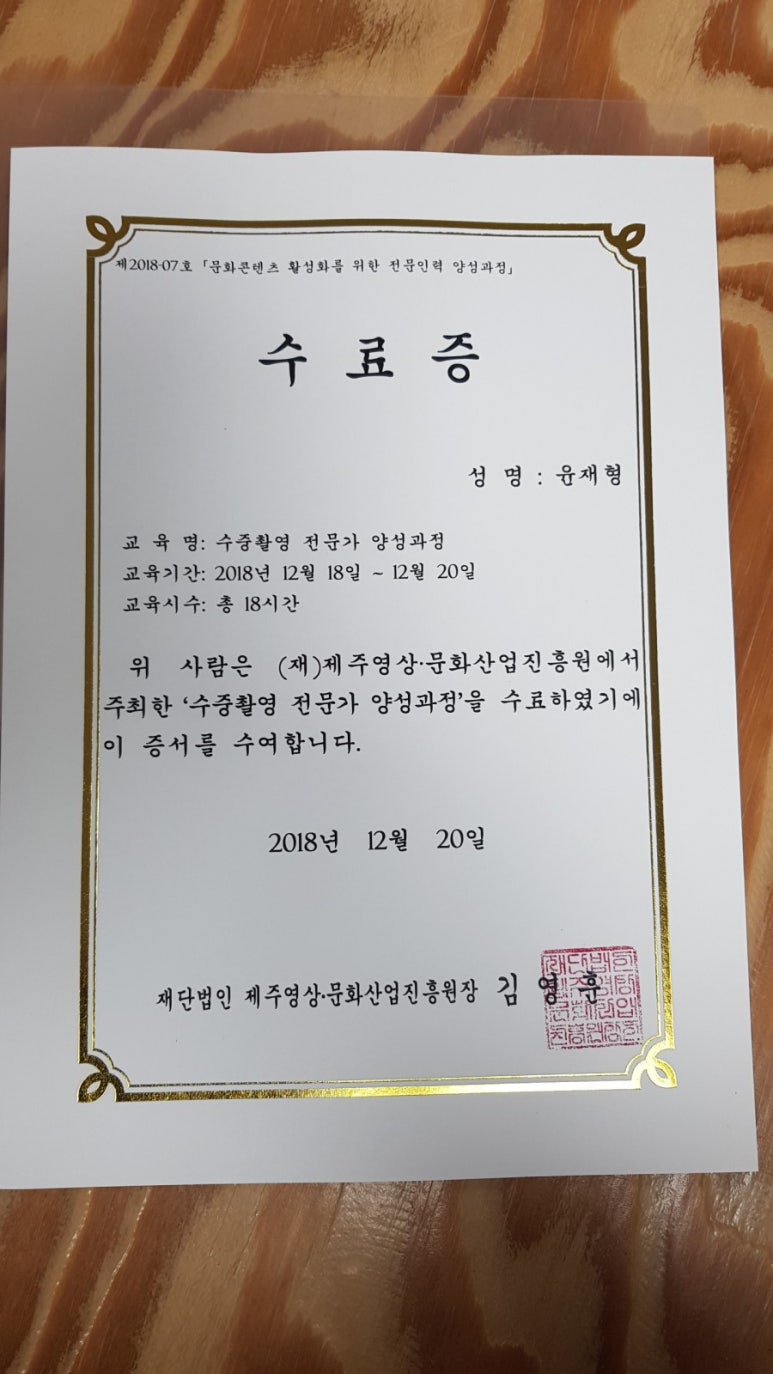 제2018-07호 「문화콘텐츠 활성화를 위한 전문인력 양성과정」
수 료 증
성 명 : 윤재형
교 육 명: 수중촬영 전문가 양성과정
교육기간: 2018년 12월 18일 ~ 12월 20일
교육시수: 총 18시간
위 사람은 (재)제주영상·문화산업진흥원에서
주최한 '수중촬영 전문가 양성과정'을 수료하였기에
이 증서를 수여합니다.
2018년 12월 20일
재단법인 제주영상·문화산업진흥원장 김 영 훈